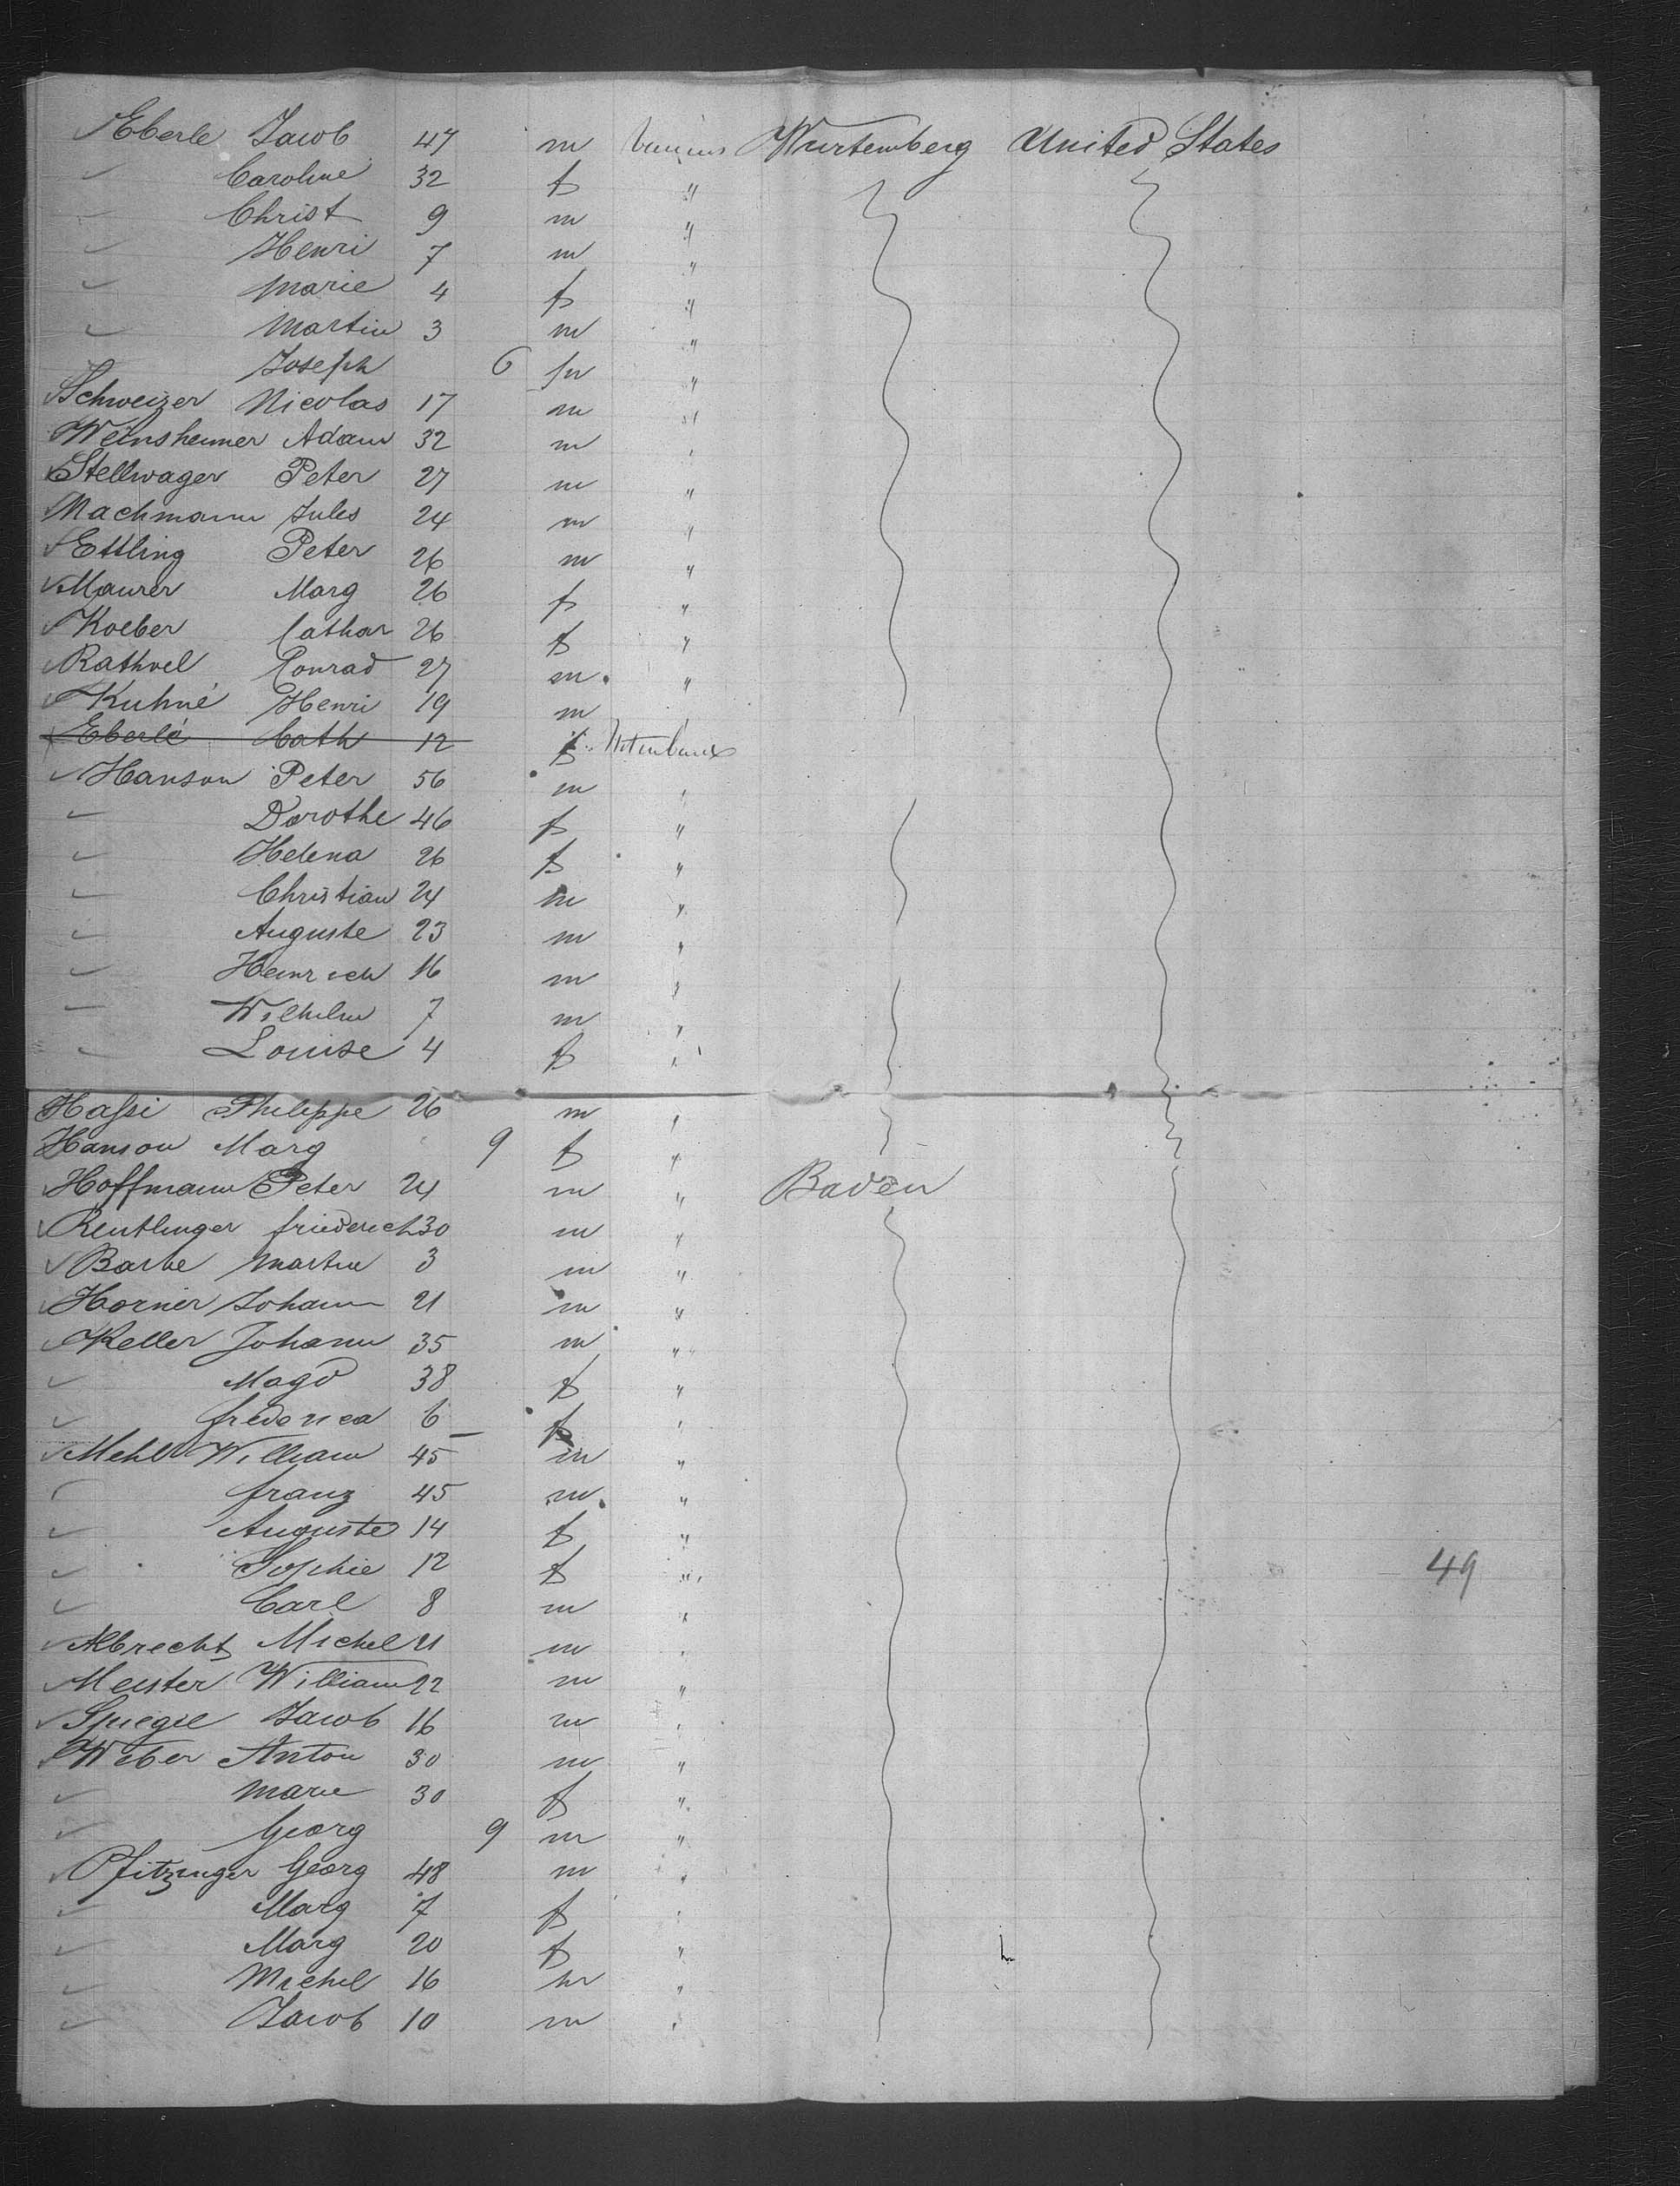 Eberle Jacob 47 m various Wurtemberg United States
Caroline 32 f "
Christ 9 m "
Henri 7 m "
Marie 4 f "
Martin 3 m "
Joseph 6 m "
Schweizer Nicolas 17 m "
Weinsheimer Adam 32 m "
Stellwager Peter 27 m "
Machmann Jules 24 m "
Ettling Peter 26 m "
Maurer Marg 26 f "
Koeber Cathar 26 f "
Rathvel Conrad 27 m "
Kuhné Henri 19 m "
Eberlé Cath 12 f
Hanson Peter 56 m "
Dorothe 46 f "
Helena 26 f "
Christian 24 m "
Auguste 23 m "
Heinrich 16 m "
Wilhelm 7 m "
Louise 4 f "
Hassi Philippe 26 m "
Hanson Marg 9 f "
Hoffmann Peter 24 m " Baden
Reutlinger friederich 30 m "
Barbe Martin 3 m "
Horner Johann 21 m "
Keller Johann 35 m "
Magd 38 f "
frederica 6 f "
Mehl William 45 m "
franz 45 m "
Auguste 14 f "
Sophie 12 f " 49
Carl 8 m "
Albrecht Michel 21 m "
Meister William 22 m "
Spiegel Jacob 16 m "
Weber Anton 30 m "
Marie 30 f "
Georg 9 m "
Pfitzinger Georg 48 m "
Marg 7 f "
Marg 20 f "
Michel 16 m "
Jacob 10 m "